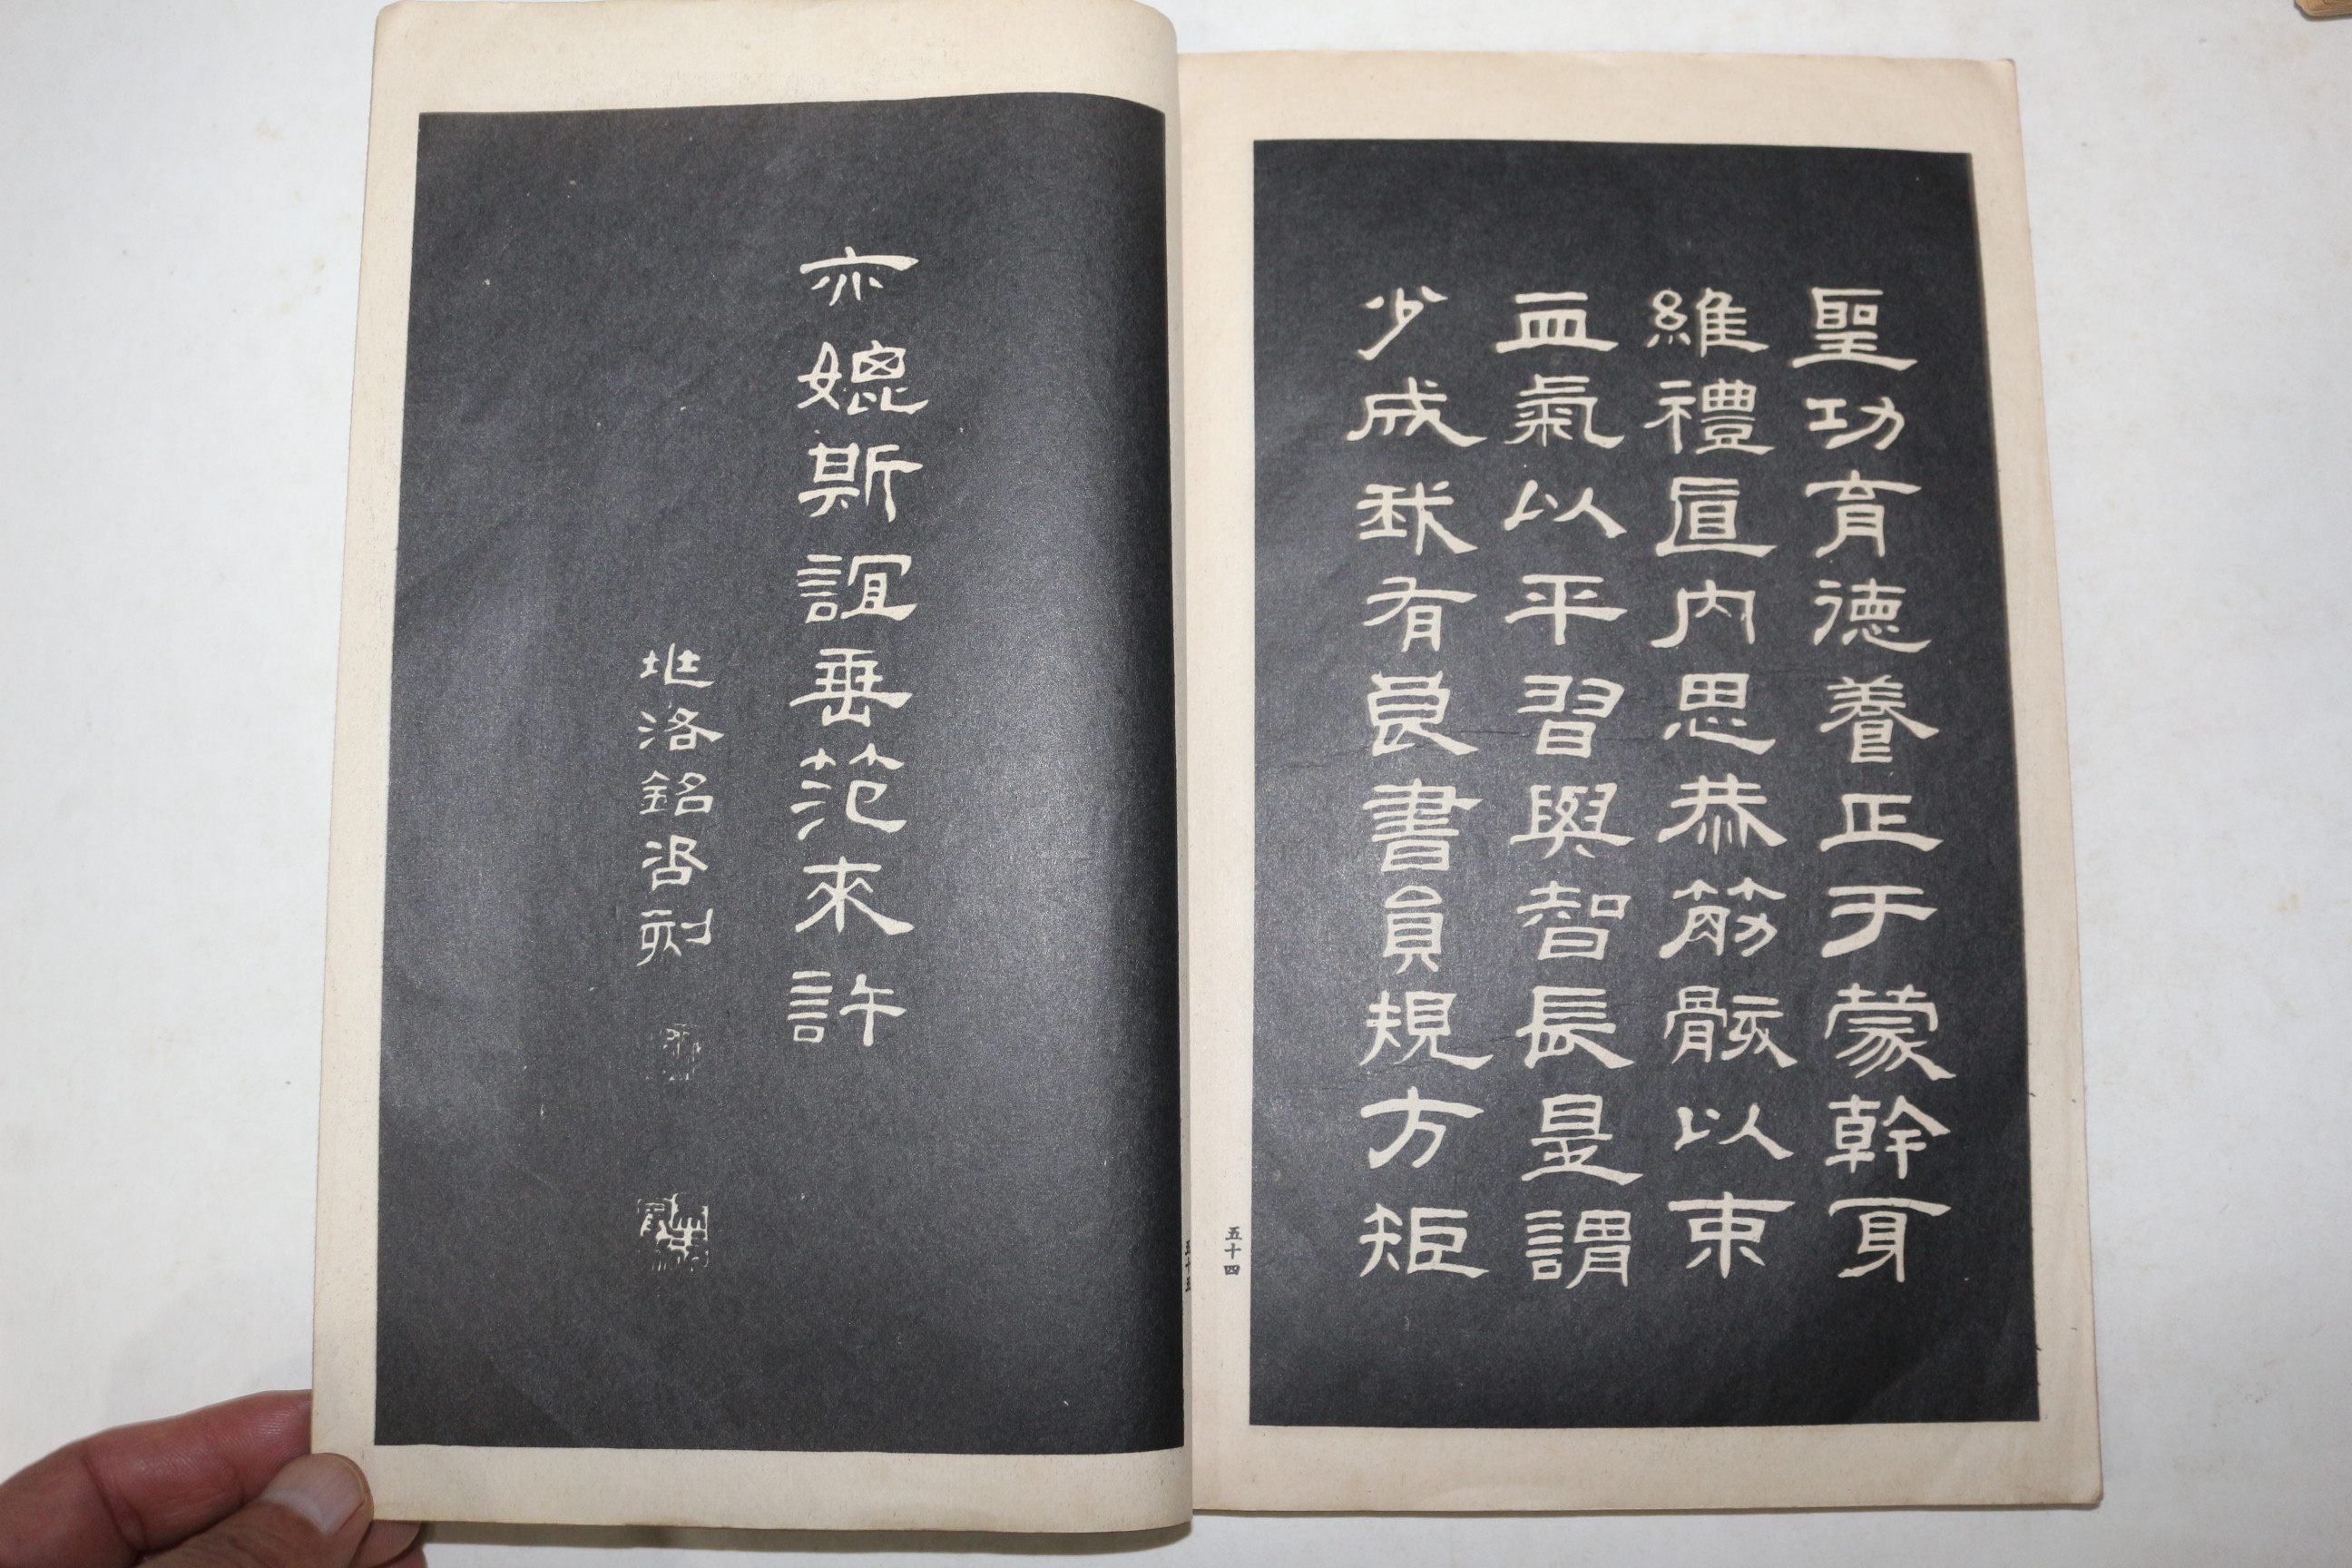 聖功育德養正于蒙幹身
維禮直内思恭筋骸以束
血氣以平習與智長是謂
少成我有良書員規方矩
五十四
五十五
亦媲斯誼垂范來許
洛銘刻